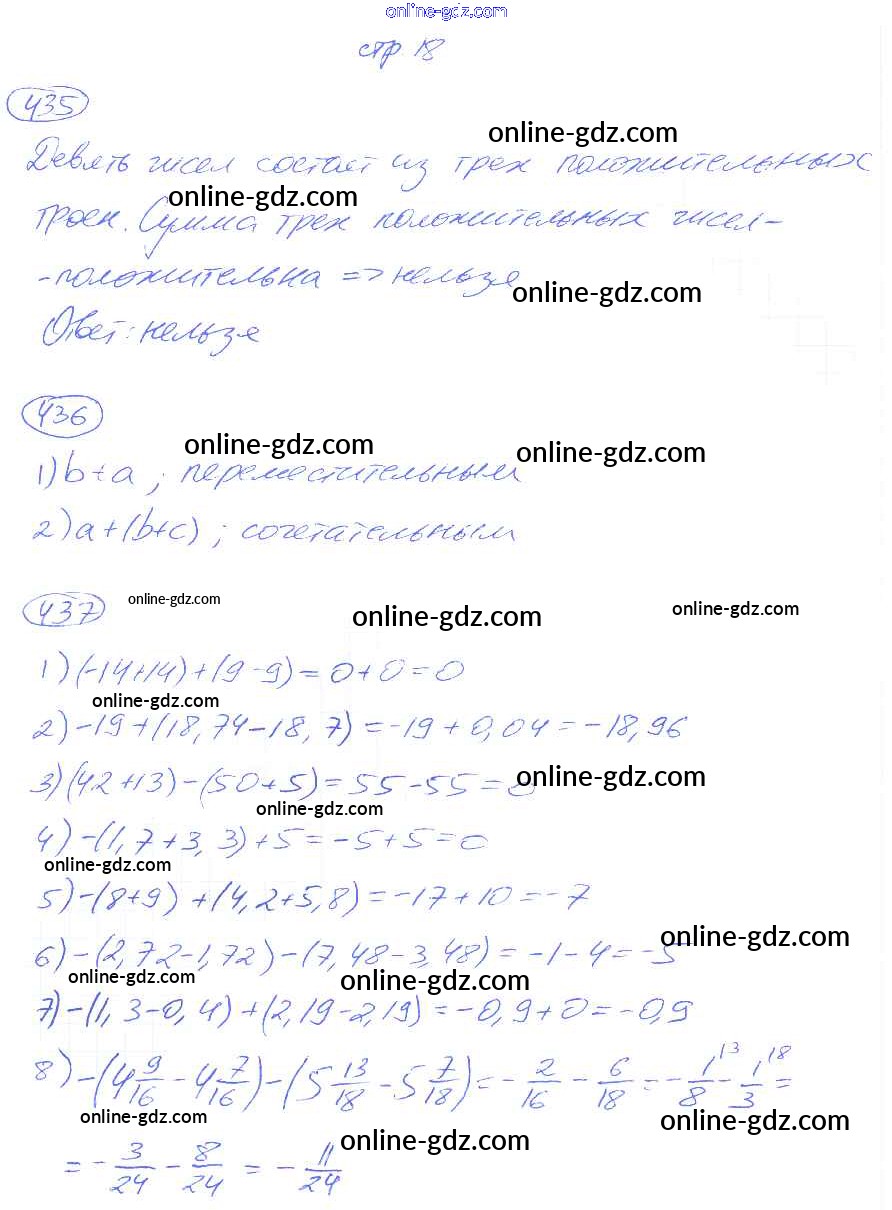 online-gdz.com
стр. 18
435
online-gdz.com
Девять чисел состоят из трех положительных
online-gdz.com
троек. Сумма трех положительных чисел-
-положительна => нельзя
online-gdz.com
Ответ: нельзя
436
online-gdz.com
online-gdz.com
1) b+a ; переместительным
2) a+(b+c) ; сочетательным
437
online-gdz.com
online-gdz.com
online-gdz.com
1) (-14+14)+(9-9)=0+0=0
online-gdz.com
2) -19+(18,74-18,7)=-19+0,04=-18,96
3) (42+13)-(50+5)=55-55=0
online-gdz.com
online-gdz.com
4) -(1,7+3,3)+5=-5+5=0
online-gdz.com
5) -(8+9)+(4,2+5,8)=-17+10=-7
online-gdz.com
6) -(2,72-1,72)-(7,48-3,48)=-1-4=-5
online-gdz.com
online-gdz.com
7) -(1,3-0,4)+(2,19-2,19)=-0,9+0=-0,9
8) -(4 9/16 - 4 7/16)-(5 13/18 - 5 7/18)=- 2/16 - 6/18 =- 1/8 \3 - 1/3 \8 =
online-gdz.com
online-gdz.com
online-gdz.com
=- 3/24 - 8/24 = - 11/24